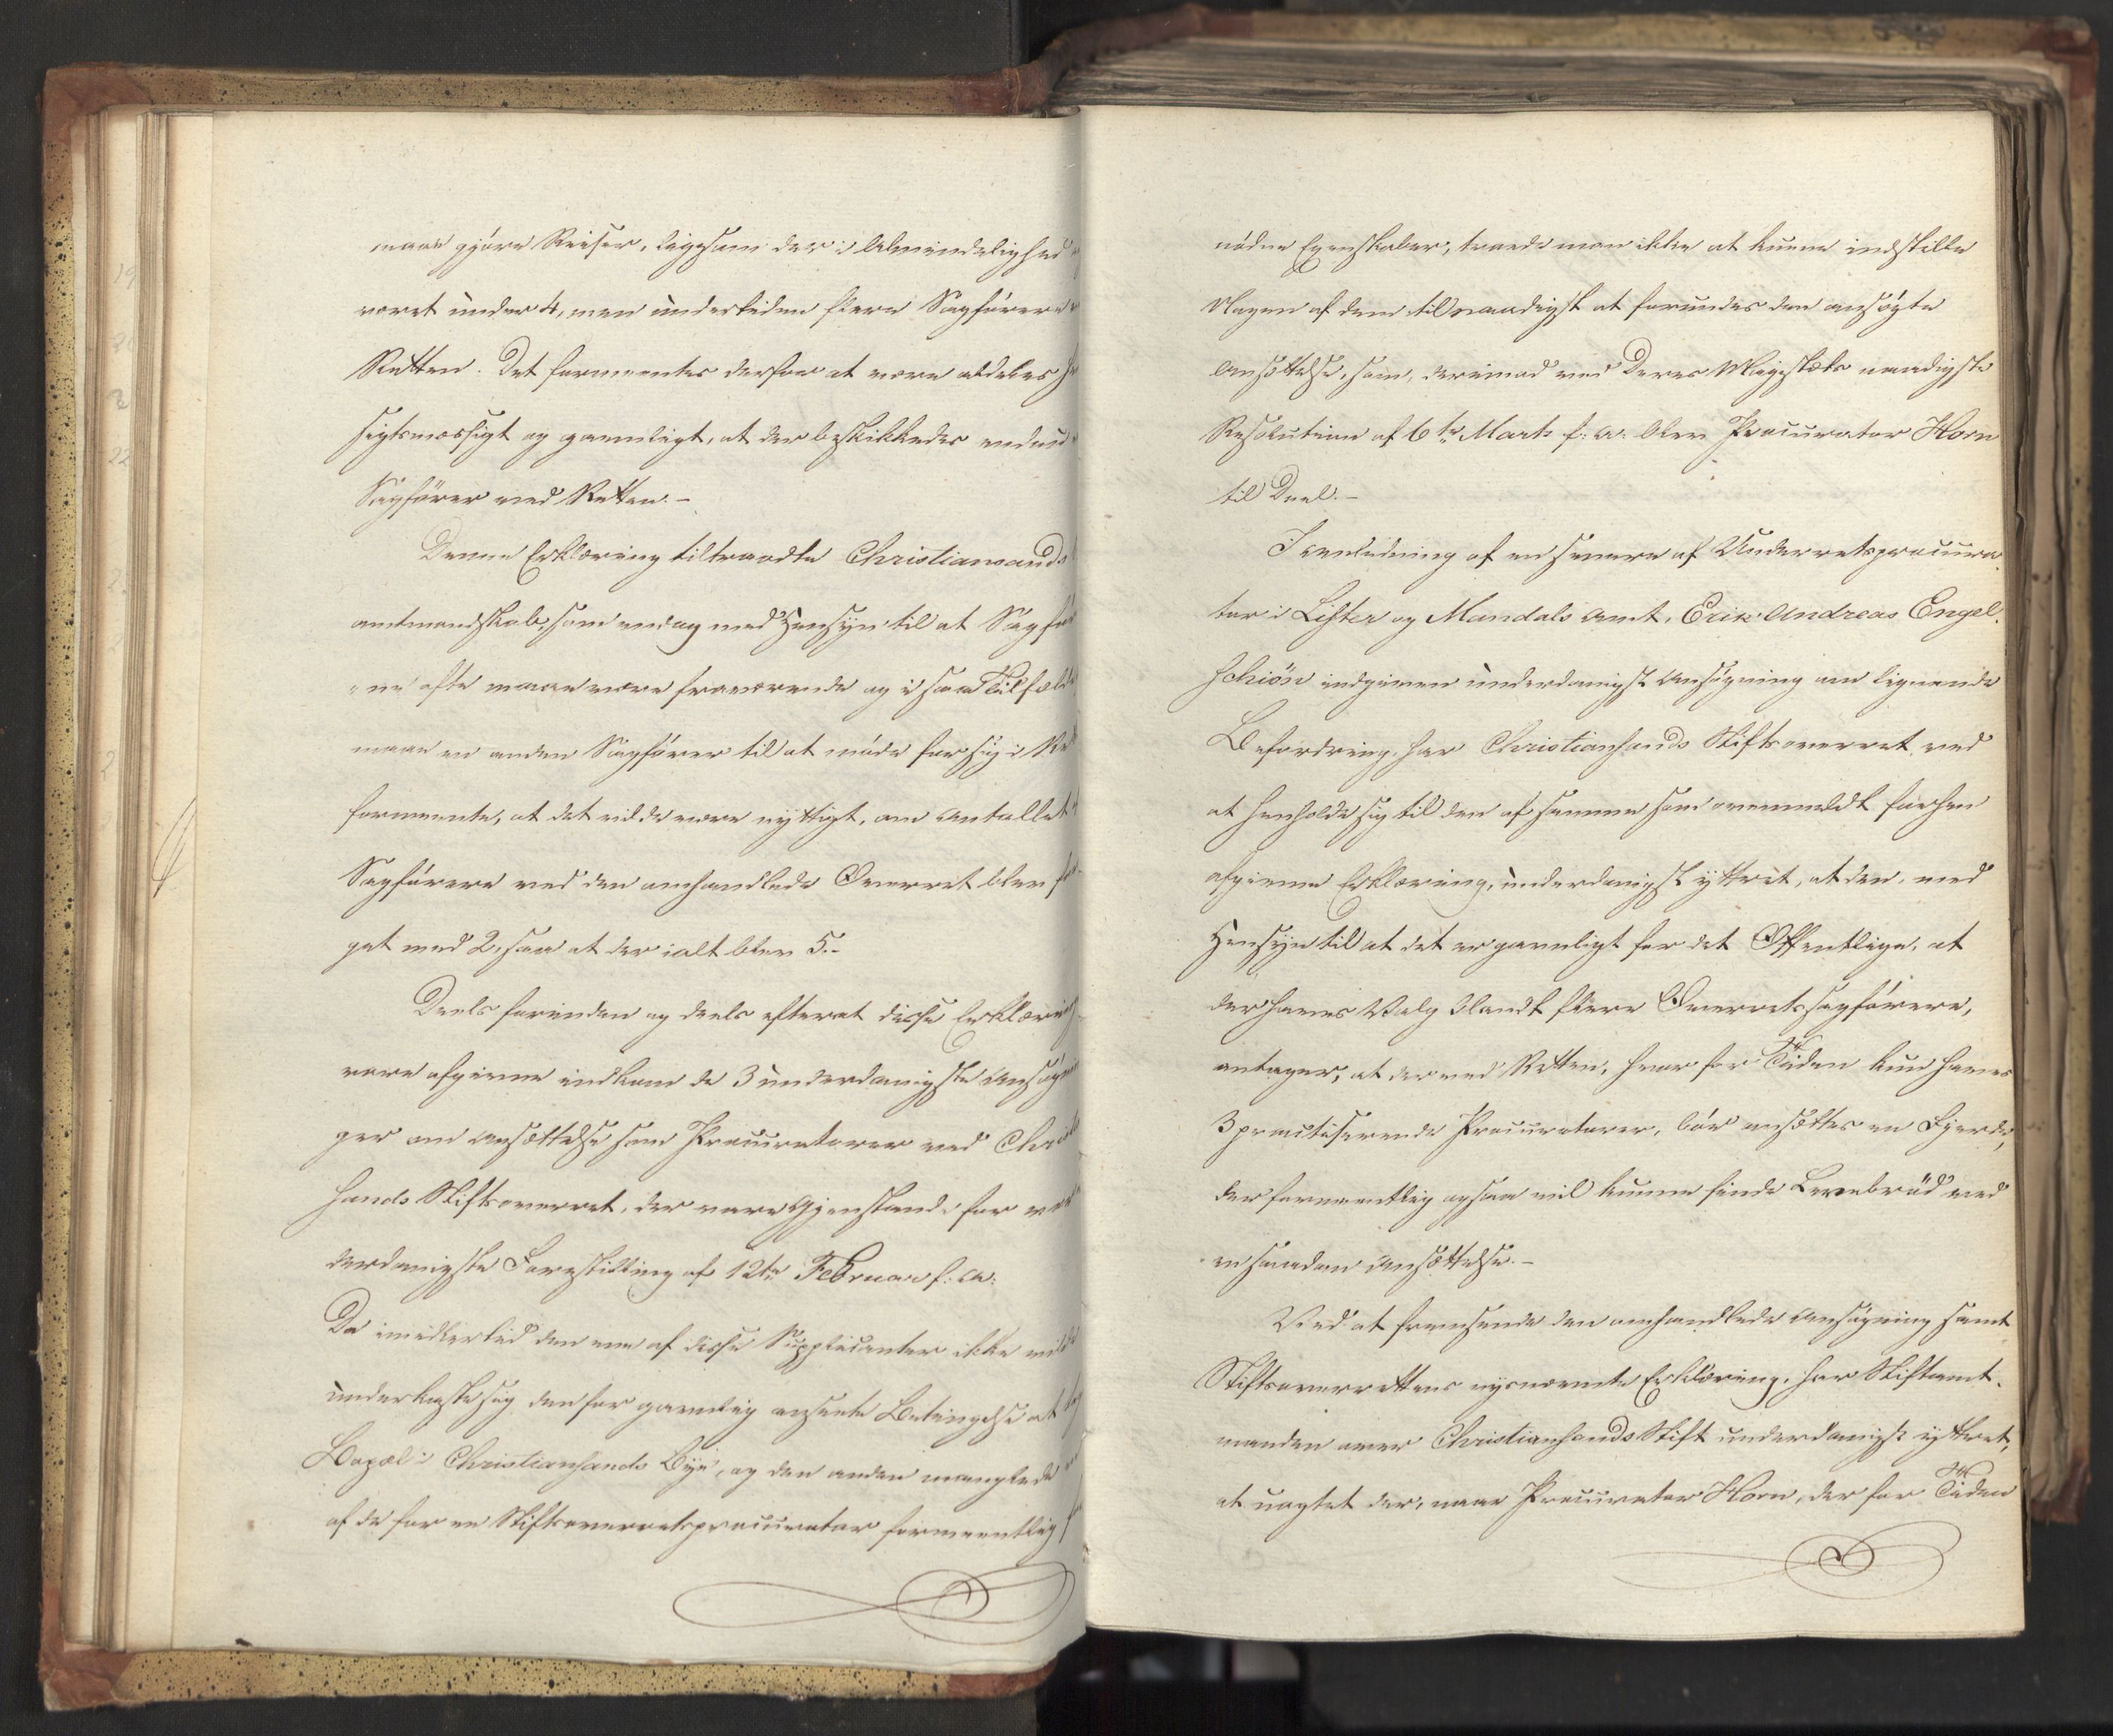 maae gjöre Reiser, ligesom der i Almindelighed
været under 4, men undertiden flere Sagförere
Retten. Det formeentes derfor at være aldeles
sigtsmæssigt og gavnligt, at der beskikkedes endnu
Sagförer ved Retten. -
Denne Erklæring tiltraadte Christiansands
amtmandskab, som endog med Hensyn til at Sagför
ne ofte maae være fraværende og i saa Tilfælde
maae en anden Sagförer til at möde for sig i
formeente, at det vilde være nyttigt, om Antallet
Sagförere ved den omhandlede Overret blev
get med 2, saa at der ialt blev 5.-
Deels forinden og deels efterat disse Erklærin
vare afgivne indkom de 3 underdanigste Ansögnin
ger om Ansættelse som Procuratorer ved Chri
sands Stiftsoverret, der vare Gjenstande for
derdanigste Forestilling af 12te Februar f: A:
Da imidlertid den ene af disse Supplicanter ikke vilde
underkaste sig den for gavnlig ansete Betingelse at
Bopæl i Christianssands Bye, og den anden manglede
af de for en Stiftsoverretsprocurator formeentlig
nödne Egenskaber, troede man ikke at kunne indstille
Nogen af dem til naadigst at forundes den ansögte
Ansættelse, som, derimod ved Deres Majestæts naadigste
Resolution af 6te Marts f: A: blev Procurator Horn
til Deel. -
I Anledning af en senere af Underretsprocura
tor i Lister og Mandals Amt, Erik Andreas Engel
schiön indgiven underdanigst Ansögning om lignende
Befordring, har Christianssands Stiftsoverret, ved
at henholde sig til den af samme som ovenmeldt forhen
afgivne Erklæring, underdanigst yttret, at den, med
Hensyn til at det er gavnligt for det Offentlige, at
der haves Valg blandt flere Overretssagförere,
antager, at der ved Retten, hvor for Tiden kun haves
3 practiserende Procuratorer, bör ansættes en Fjerde,
der formeentlig ogsaa vil kunne finde Levebröd ved
en saadan Ansættelse. -
Ved at fremsende den omhandlede Ansögning samt
Stiftsoverrettens nysnævnte Erklæring, har Stiftamt-
manden over Christianssands Stift underdanigst yttret,
at uagtet der, naar Procurator Horn, der for Tiden